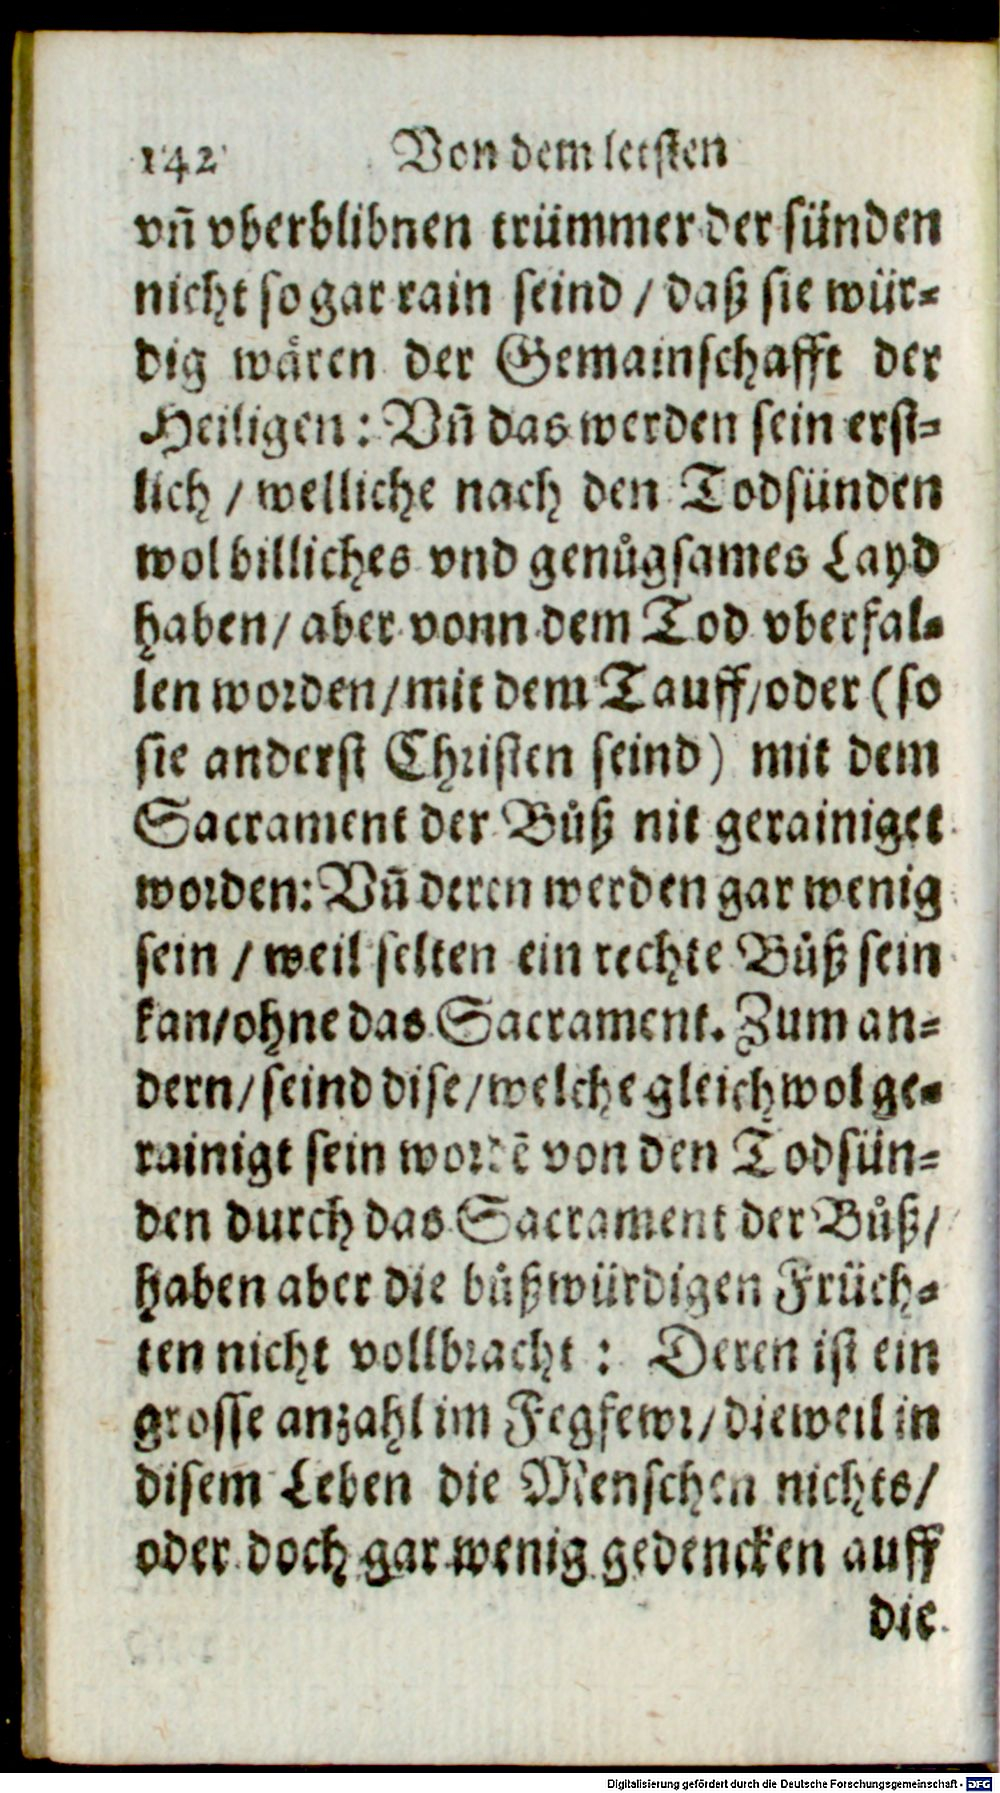 142 Von dem letsten
vñ vberblibnen trümmer der sünden
nicht so gar rain seind / daß sie wür-
dig wären der Gemainschafft der
Heiligen: Vñ das werden sein erst-
lich / welliche nach den Todsünden
wol billiches vnd genůgsames Layd
haben / aber vonn dem Tod vberfal-
len worden / mit dem Tauff / oder (so
sie anderst Christen seind) mit dem
Sacrament der Bůß nit gerainiget
worden: Vñ deren werden gar wenig
sein / weil selten ein rechte Bůß sein
kan / ohne das Sacrament. Zum an-
dern / seind dise / welche gleichwol ge-
rainigt sein wordē von den Todsün-
den durch das Sacrament der Bůß /
haben aber die bůßwürdigen Früch-
ten nicht vollbracht: Deren ist ein
grosse anzahl im Fegfewr / dieweil in
disem Leben die Menschen nichts /
oder doch gar wenig gedencken auff
die
Digitalisierung gefördert durch die Deutsche Forschungsgemeinschaft - DFG